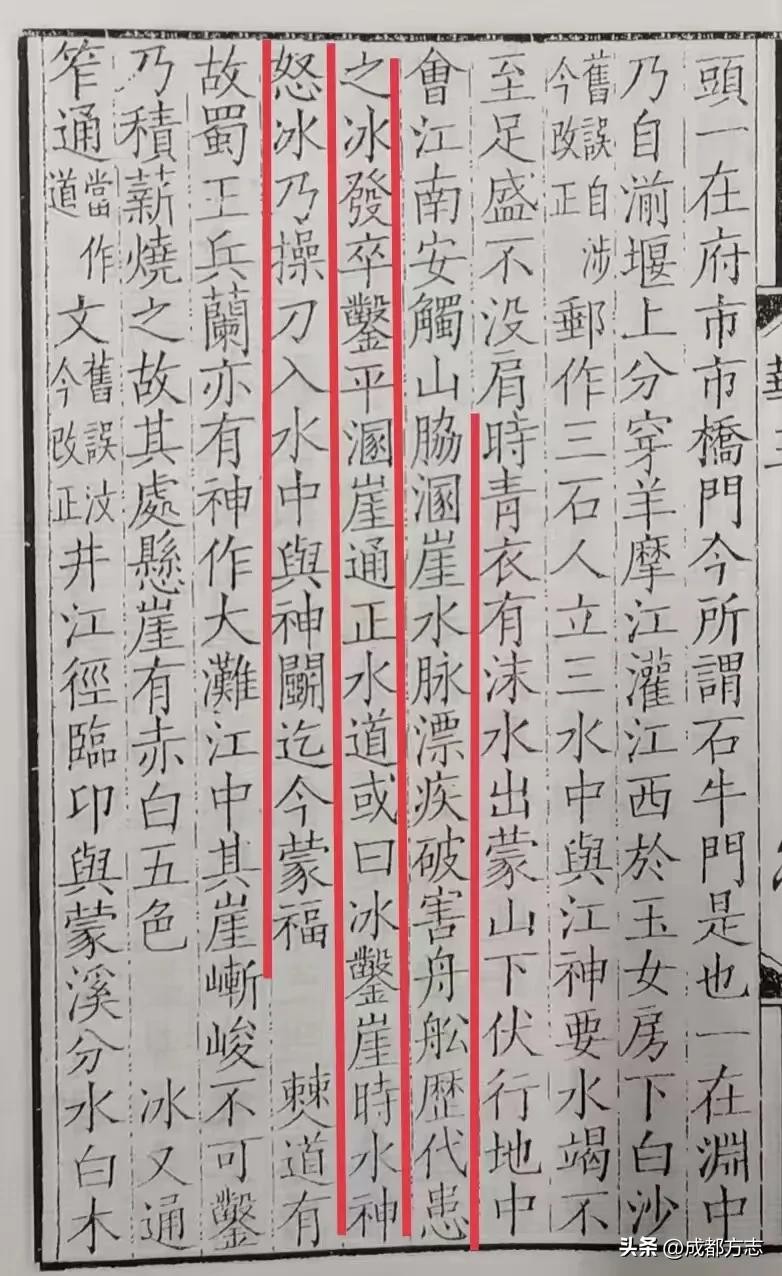 頭一在府市市橋門今所謂石牛門是也一在淵中
乃自湔堰上分穿羊摩江灌江西於玉女房下白沙
舊誤自涉今改正郵作三石人立三水中與江神要水竭不
至足盛不没肩時青衣有沫水出蒙山下伏行地中
會江南安觸山脇溷崖水脉漂疾破害舟舩歷代患
之冰發卒鑿平溷崖通正水道或曰冰鑿崖時水神
怒冰乃操刀入水中與神鬭迄今蒙福　僰道有
故蜀王兵蘭亦有神作大灘江中其崖嶄峻不可鑿
乃積薪燒之故其處懸崖有赤白五色　冰又通
笮通當作道文舊誤汶今改正井江徑臨印與蒙溪分水白木
头条 @成都方志